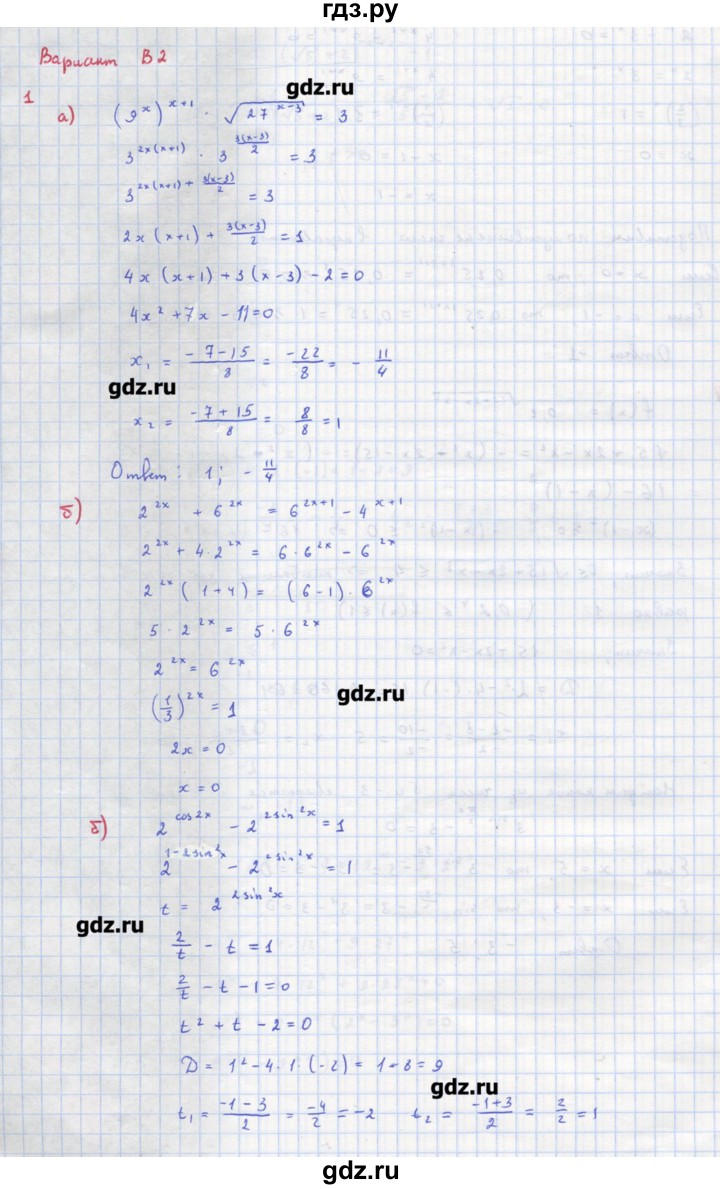 гдз.ру
Вариант В2
gdz.ru
1
а) (9^x)^{x+1} · √(27^{x-3}) = 3
3^{2x(x+1)} · 3^{3(x-3)/2} = 3
3^{2x(x+1) + 3(x-3)/2} = 3
2x(x+1) + 3(x-3)/2 = 1
4x(x+1) + 3(x-3) - 2 = 0
4x² + 7x - 11 = 0
x₁ = (-7-15)/8 = -22/8 = - 11/4
gdz.ru
x₂ = (-7+15)/8 = 8/8 = 1
Ответ: 1; - 11/4
б) 2^{2x} + 6^{2x} = 6^{2x+1} - 4^{x+1}
2^{2x} + 4·2^{2x} = 6·6^{2x} - 6^{2x}
2^{2x}(1+4) = (6-1)·6^{2x}
5·2^{2x} = 5·6^{2x}
2^{2x} = 6^{2x}
gdz.ru
(1/3)^{2x} = 1
2x = 0
x = 0
б) 2^{cos2x} - 2^{2sin²x} = 1
2^{1-2sin²x} - 2^{2sin²x} = 1
t = 2^{2sin²x}
gdz.ru
2/t - t = 1
2/t - t - 1 = 0
t² + t - 2 = 0
D = 1² - 4·1·(-2) = 1+8 = 9
gdz.ru
t₁ = (-1-3)/2 = -4/2 = -2 t₂ = (-1+3)/2 = 2/2 = 1
gdz.ru